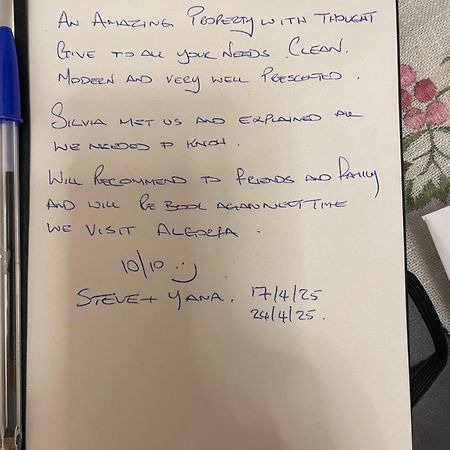 An Amazing Property with Thought
Give to all your needs. Clean.
Modern and very well Prescated.
Silvia met us and explained all
we needed to know.
Will Recommend to Friends and Family
and will Re Book again next time
we visit Algeria.
10/10 :)
Steve + Yana. 17/4/25
24/4/25.